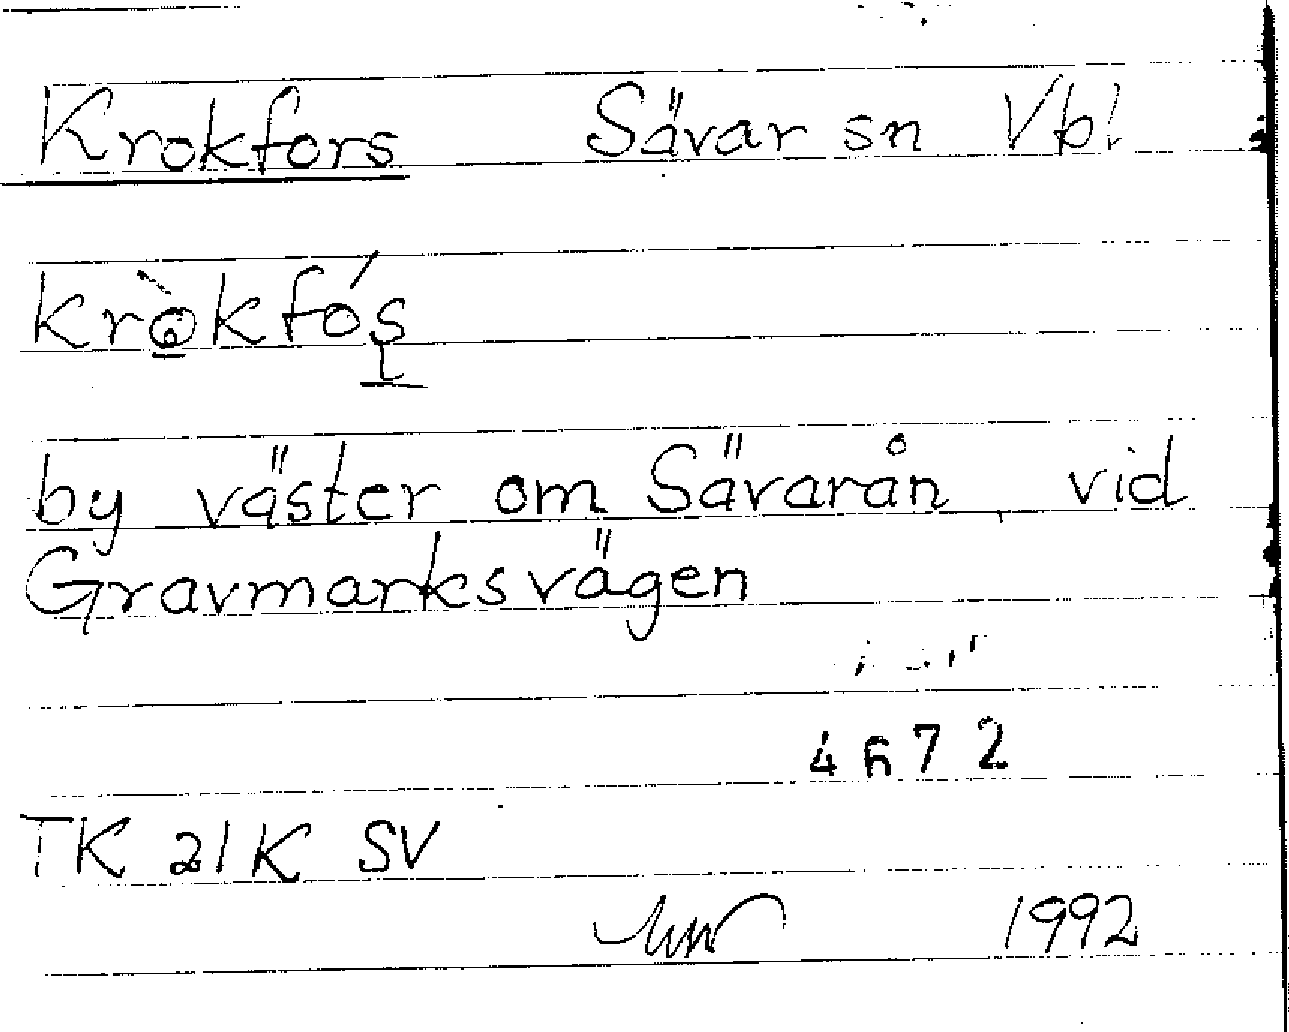 Krokfors Sävar sn Vbl
kròkfóş
by väster om Sävarån, vid
Gravmarksvägen
4672
TK 21K SV
1992